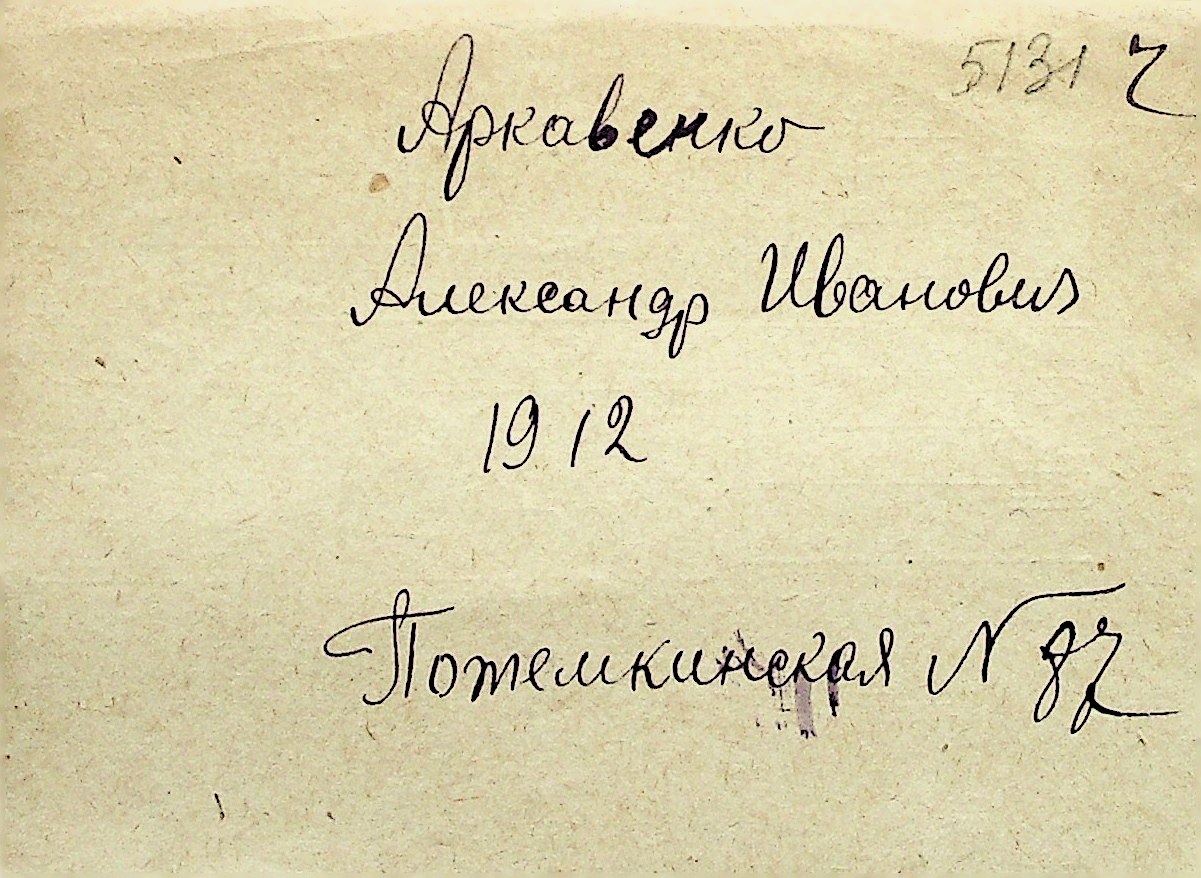 5131 г
Аркавенко
Александр Иванович
1912
Потемкинская № 82